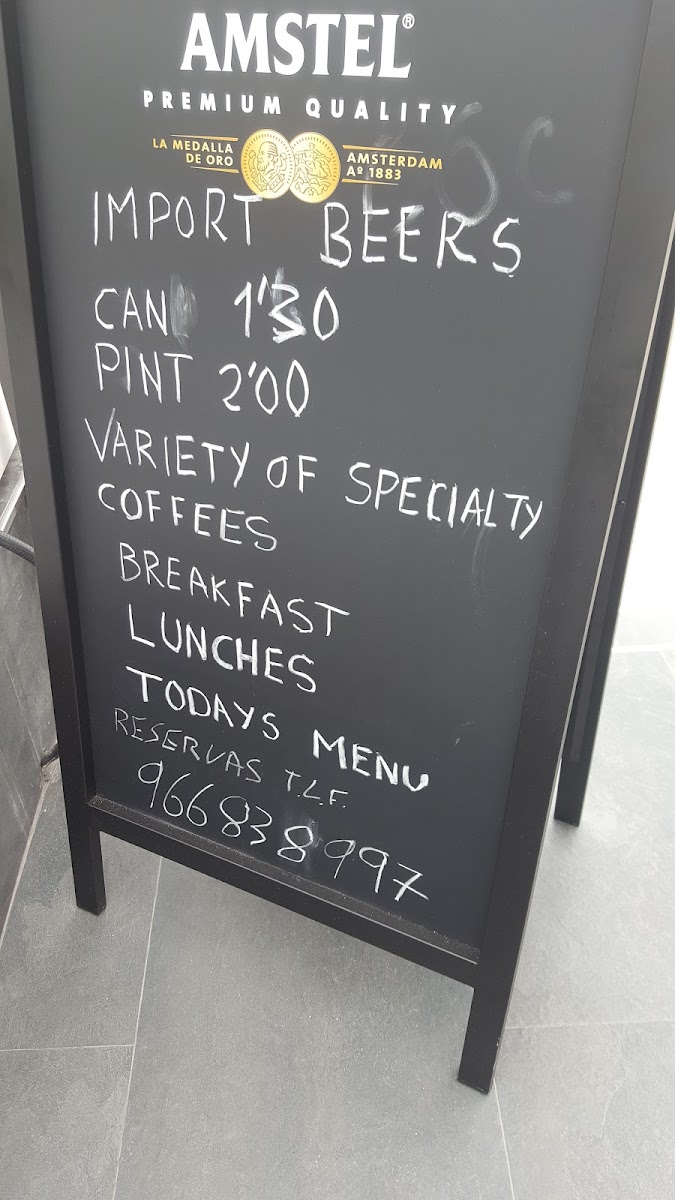 AMSTEL®
PREMIUM QUALITY
LA MEDALLA DE ORO
AMSTERDAM Aº 1883
IMPORT BEERS
CAN 1'30
PINT 2'00
VARIETY OF SPECIALTY
COFFEES
BREAKFAST
LUNCHES
TODAYS MENU
RESERVAS T.L.F.
966838997